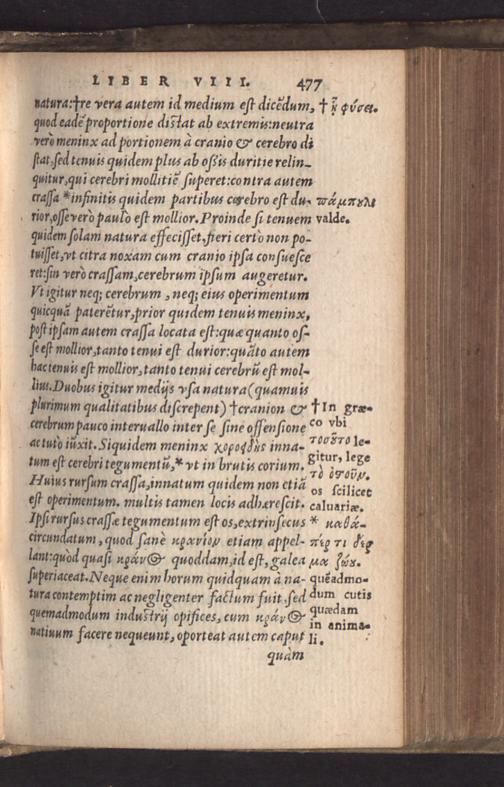 LIBER VIII. 477
natura:†re vera autem id medium est dicēdum,
quod eadē proportione distat ab extremis:neutra
verò meninx ad portionem à cranio & cerebro di
stat,sed tenuis quidem plus ab oßis duritie relin-
quitur,qui cerebri mollitiē superet:contra autem
crassa *infinitis quidem partibus cerebro est du-
rior,osse verò paulò est mollior. Proinde si tenuem
quidem solam natura effecisset, fieri certò non po-
tuisset, vt citra noxam cum cranio ipsa consuesce
ret:sin verò crassam,cerebrum ipsum augeretur.
Vt igitur neq; cerebrum , neq; eius operimentum
quicquā paterētur,prior quidem tenuis meninx,
post ipsam autem crassa locata est:quæ quanto os-
se est mollior,tanto tenui est durior:quāto autem
hac tenuis est mollior, tanto tenui cerebrū est mol-
lius.Duobus igitur medijs vsa natura(quamuis
plurimum qualitatibus discrepent) †cranion &
cerebrum pauco interuallo inter se sine offensione
ac tutò iūxit. Siquidem meninx χοροειδὴς inna-
tum est cerebri tegumentū,* vt in brutis corium.
Huius rursum crassa,innatum quidem non etiā
est operimentum. multis tamen locis adhærescit.
Ipsi rursus crassæ tegumentum est os,extrinsecus
circundatum, quod sanè κρανίον etiam appel-
lant:quòd quasi κράνος quoddam,id est, galea
superiaceat. Neque enim horum quidquam à na-
tura contemptim ac negligenter factum fuit,sed
quemadmodum industrij opifices, cum κράνος
natiuum facere nequeunt, oporteat autem caput
quàm
† ἢ φύσει.
πάμπολυ
valde.
† In græ-
co vbi
τοσοῦτο le-
gitur, lege
τὸ ὀστοῦν.
os scilicet
caluariæ.
* καθά-
πέρ τι δέρ
μα ζώου.
quēadmo-
dum cutis
quædam
in anima-
li.